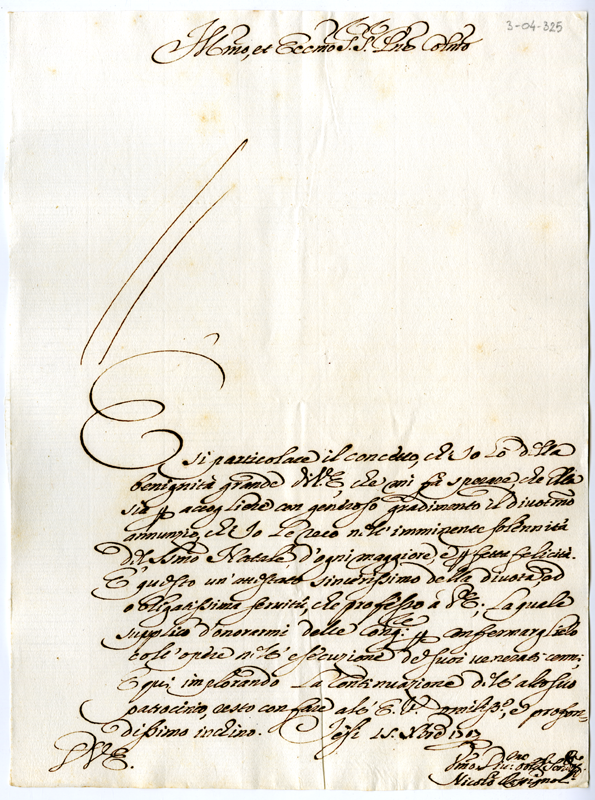 3-04-325
Illmo, et Eccmo S.r S.r Pne Colmo
È si particolare il concetto, ch'Io hò della
benignità grande di V.E. che mi fà sperare, che Ella
sia p accogliere con generoso gradimento il divotmo
annunzio, ch'Io Le reco nell'imminente solennità
del SSmo Natale d'ogni maggiore, e pfetta felicità.
È questo un'attestato sincerissimo della divota, ed
obligatissima servitù, che professo à V.E.; La quale
supplico d'onorarmi delle Cong.re p confermargliela
coll'opere nell'esecuzione de suoi venerati comi;
E qui implorando La Continuazione dell'alto suo
patrocinio, resto con fare all'E.V. umiliss.o, e profon-
dissimo inchino. Jesi 15. Xbre 1713
D.V.E.
Nicolò